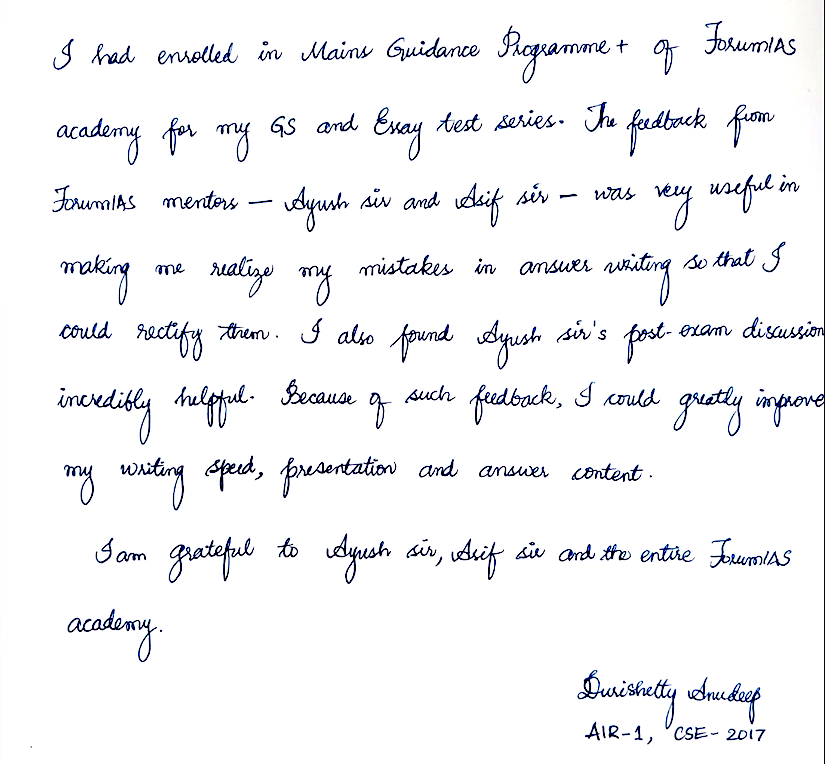 I had enrolled in Mains Guidance Programme+ of ForumIAS
academy for my GS and Essay test series. The feedback from
ForumIAS mentors — Ayush sir and Asif sir — was very useful in
making me realize my mistakes in answer writing so that I
could rectify them. I also found Ayush sir's post-exam discussion
incredibly helpful. Because of such feedback, I could greatly improve
my writing speed, presentation and answer content.
I am grateful to Ayush sir, Asif sir and the entire ForumIAS
academy.
Durishetty Anudeep
AIR-1, CSE-2017